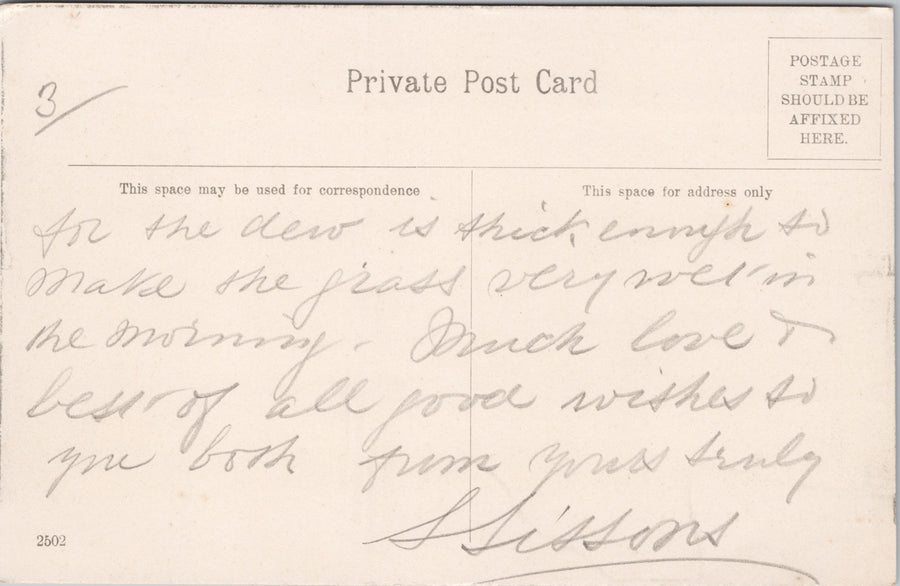 3/
Private Post Card
POSTAGE
STAMP
SHOULD BE
AFFIXED
HERE.
This space may be used for correspondence
This space for address only
for the dew is thick enough to
make the grass very wet in
the morning. Much love &
best of all good wishes to
you both from yours truly
S Sissons
2502